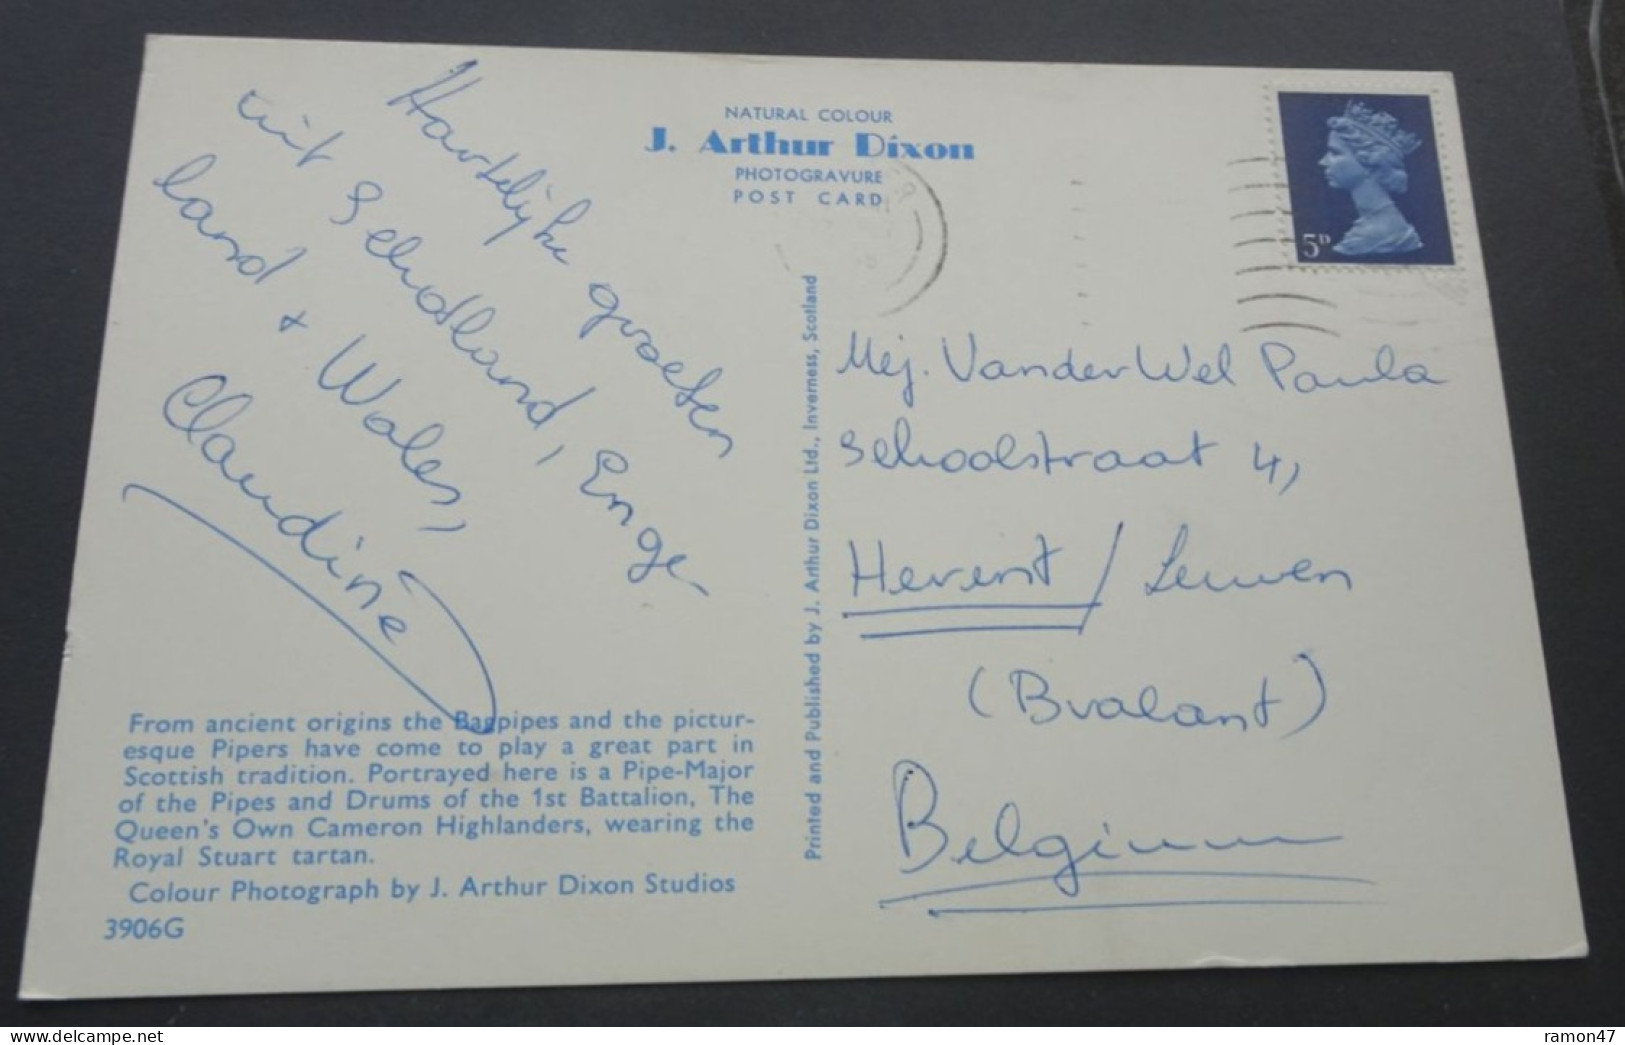 NATURAL COLOUR
J. Arthur Dixon
PHOTOGRAVURE
POST CARD
5D
Hartelijke groeten
uit Schotland, Enge
land + Wales,
Claudine
From ancient origins the Bagpipes and the pictur-
esque Pipers have come to play a great part in
Scottish tradition. Portrayed here is a Pipe-Major
of the Pipes and Drums of the 1st Battalion, The
Queen's Own Cameron Highlanders, wearing the
Royal Stuart tartan.
Colour Photograph by J. Arthur Dixon Studios
3906G
Printed and Published by J. Arthur Dixon Ltd., Inverness, Scotland
Mej. VanderWel Paula
Schoolstraat 4,
Herent / Leuven
(Brabant)
Belgium
delcampe.net
ramon47